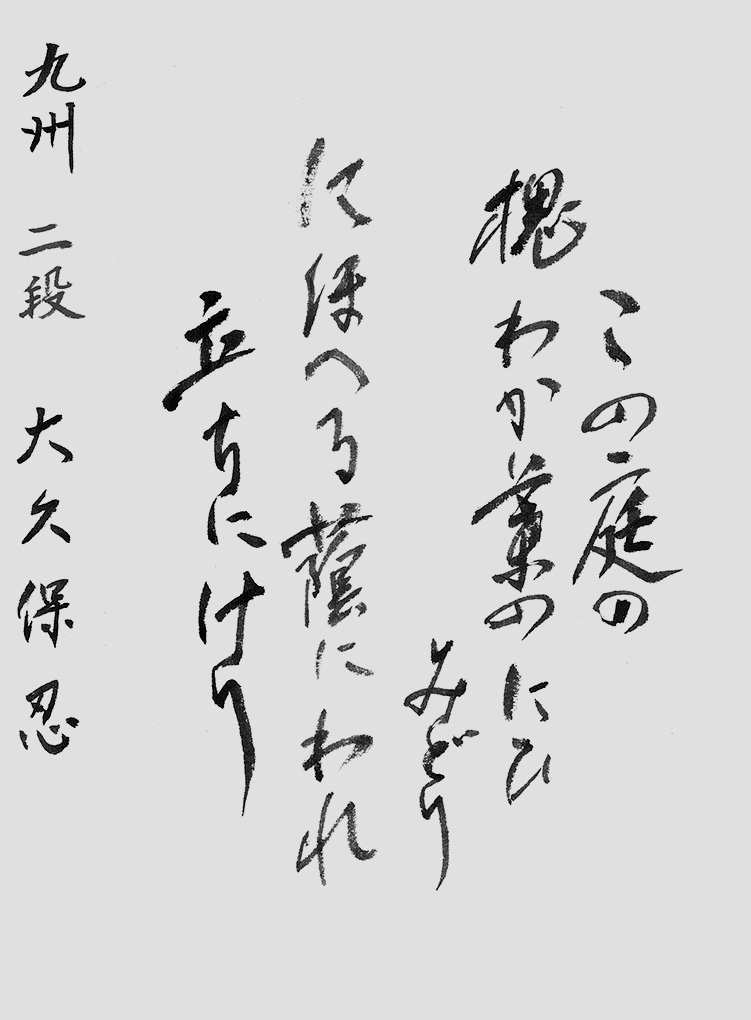 この庭の
槐わか葉の にひ
みどり
にほへる蔭にわれ
立ちにけり
九州 二段 大久保忍